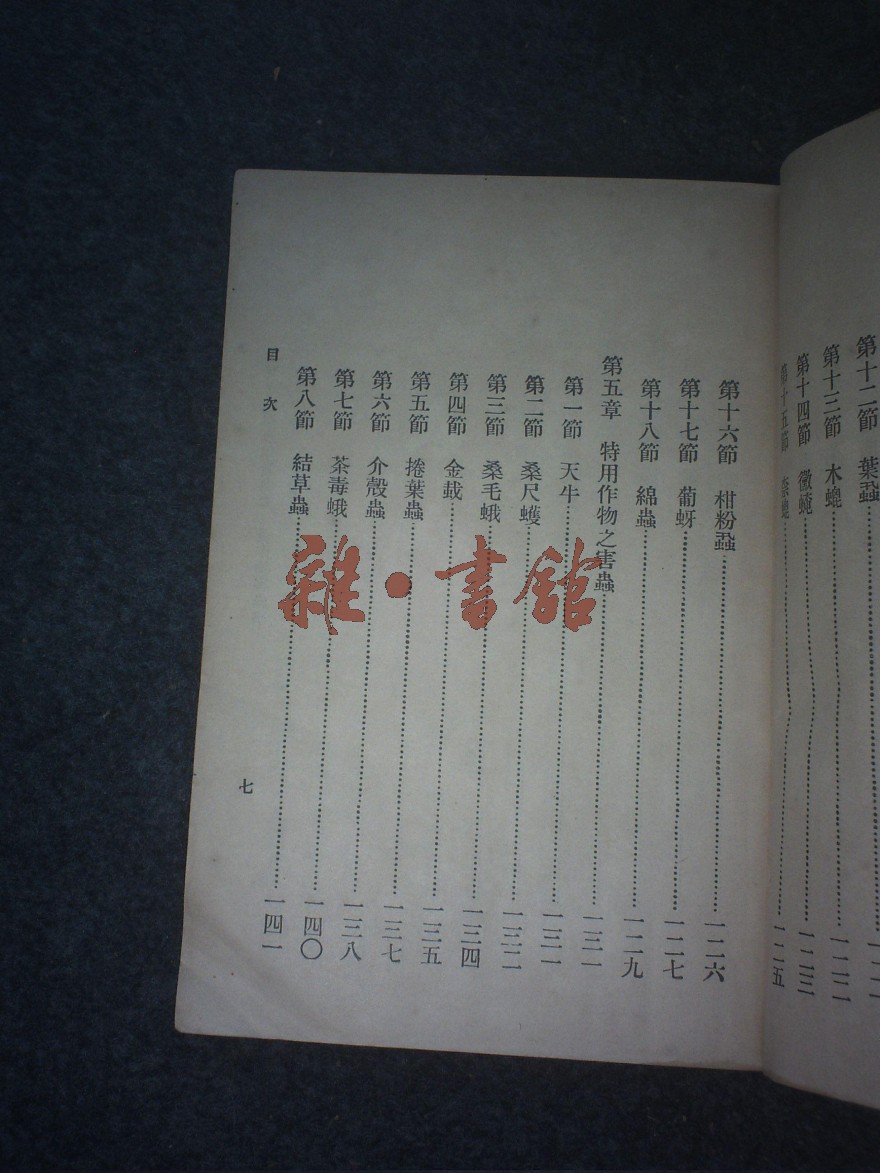 第十二節 葉蝨
第十三節 木……一二二
第十四節……一二三
第十五節……一二五
第十六節 柑粉蝨……一二六
第十七節 葡蚜……一二七
第十八節 綿蟲……一二九
第五章 特用作物之害蟲……一三一
第一節 天牛……一三一
第二節 桑尺蠖……一三二
第三節 桑毛蛾……一三四
第四節 金蛓……一三五
第五節 捲葉蟲……一三七
第六節 介殼蟲……一三八
第七節 茶毒蛾……一四〇
第八節 結草蟲……一四一
目次
七
雜·書館